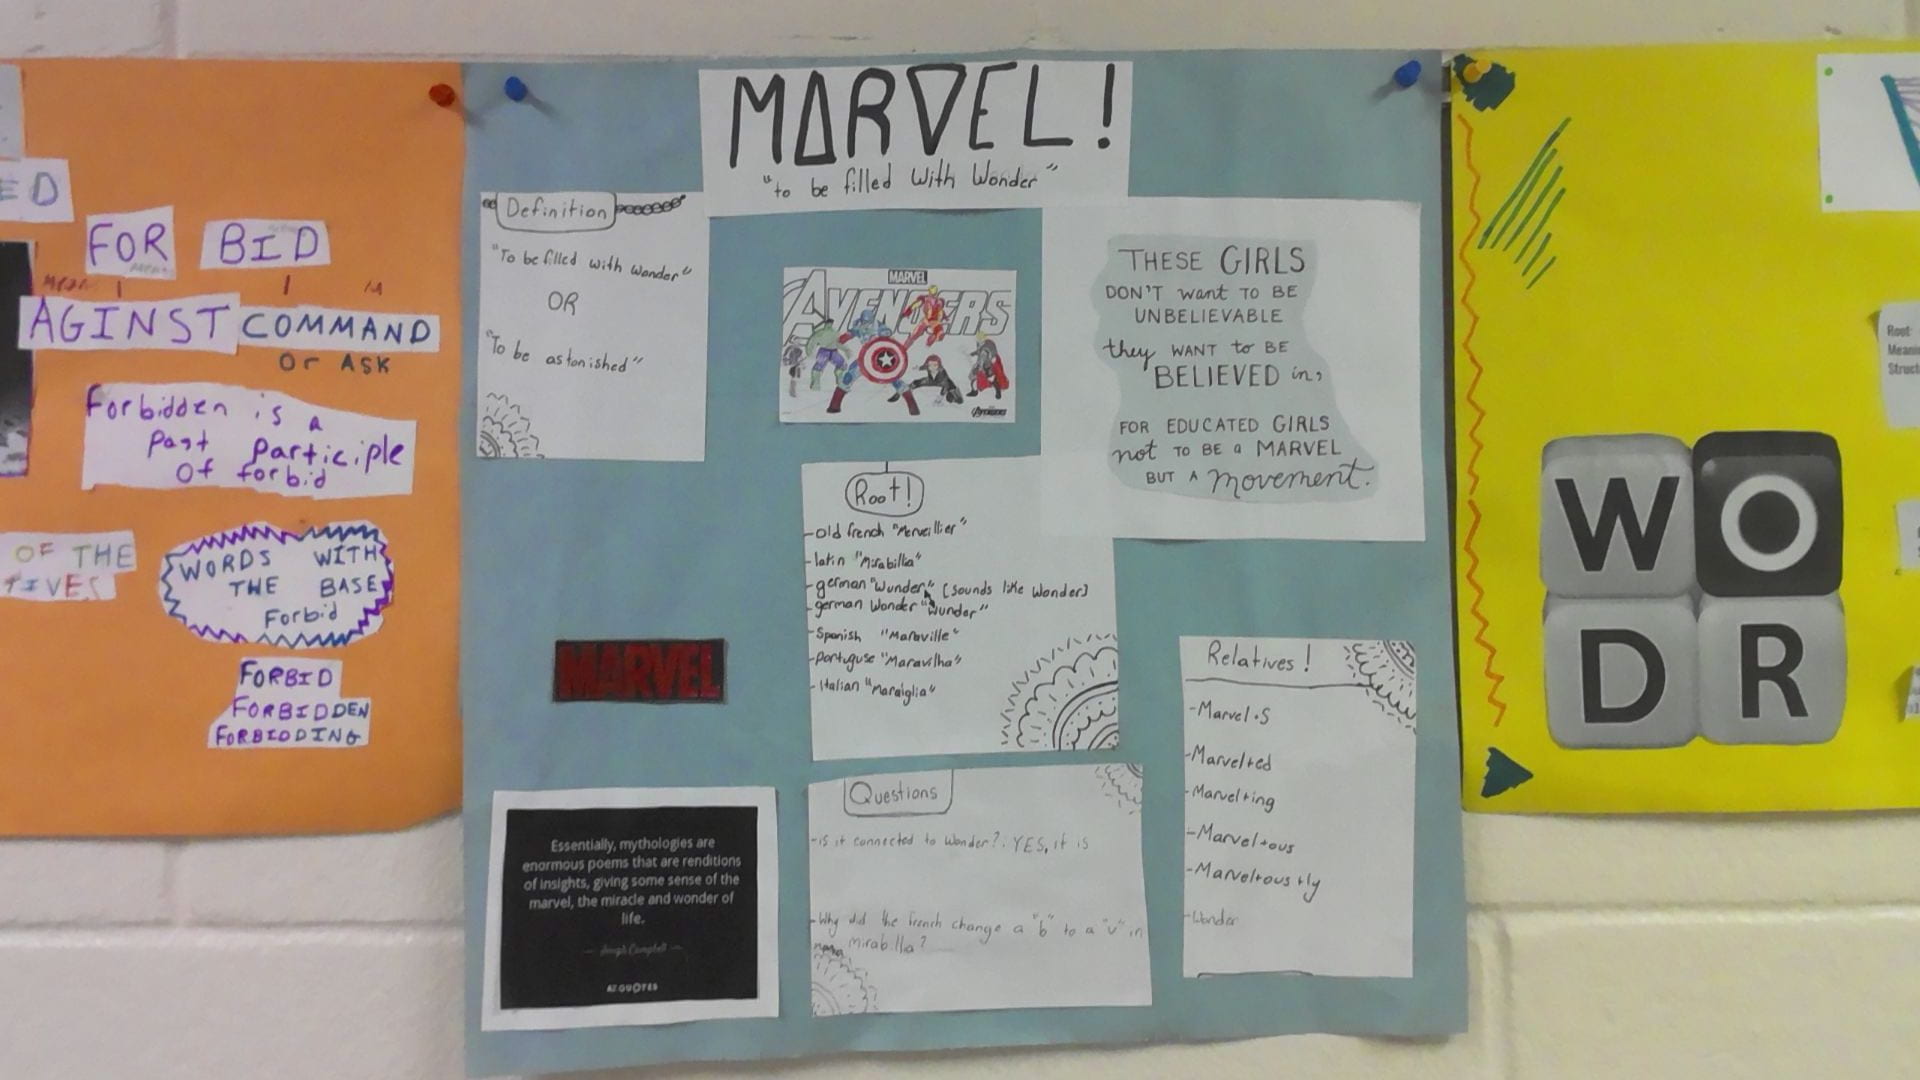 ED
FOR BID
AGINST COMMAND
Or ASK
Forbidden is a
past participle
of forbid
OF THE
TIVES
WORDS WITH
THE BASE
Forbid
FORBID
FORBIDDEN
FORBIDDING
MARVEL!
"to be filled with Wonder"
Definition
"To be filled with Wonder"
OR
"To be astonished"
MARVEL
AVENGERS
THESE GIRLS
DON'T want TO BE
UNBELIEVABLE
they WANT to BE
BELIEVED in,
FOR EDUCATED GIRLS
not TO BE a MARVEL
BUT A movement.
Root!
-old french "Merveillier"
-latin "Mirabilia"
-german "Wunder" (sounds like Wonder)
-german Wonder "Wunder"
-Spanish "Maraville"
-portuguse "Maravilha"
-Italian "Maraiglia"
MARVEL
Essentially, mythologies are
enormous poems that are renditions
of insights, giving some sense of the
marvel, the miracle and wonder of
life.
— Joseph Campbell —
AZ QUOTES
Questions
-is it connected to Wonder?: YES, it is
-Why did the french change a "b" to a "v" in
mirabilla?
Relatives!
-Marvel+S
-Marvel+ed
-Marvel+ing
-Marvel+ous
-Marvel+ous+ly
-Wonder
Root:
W O
D R